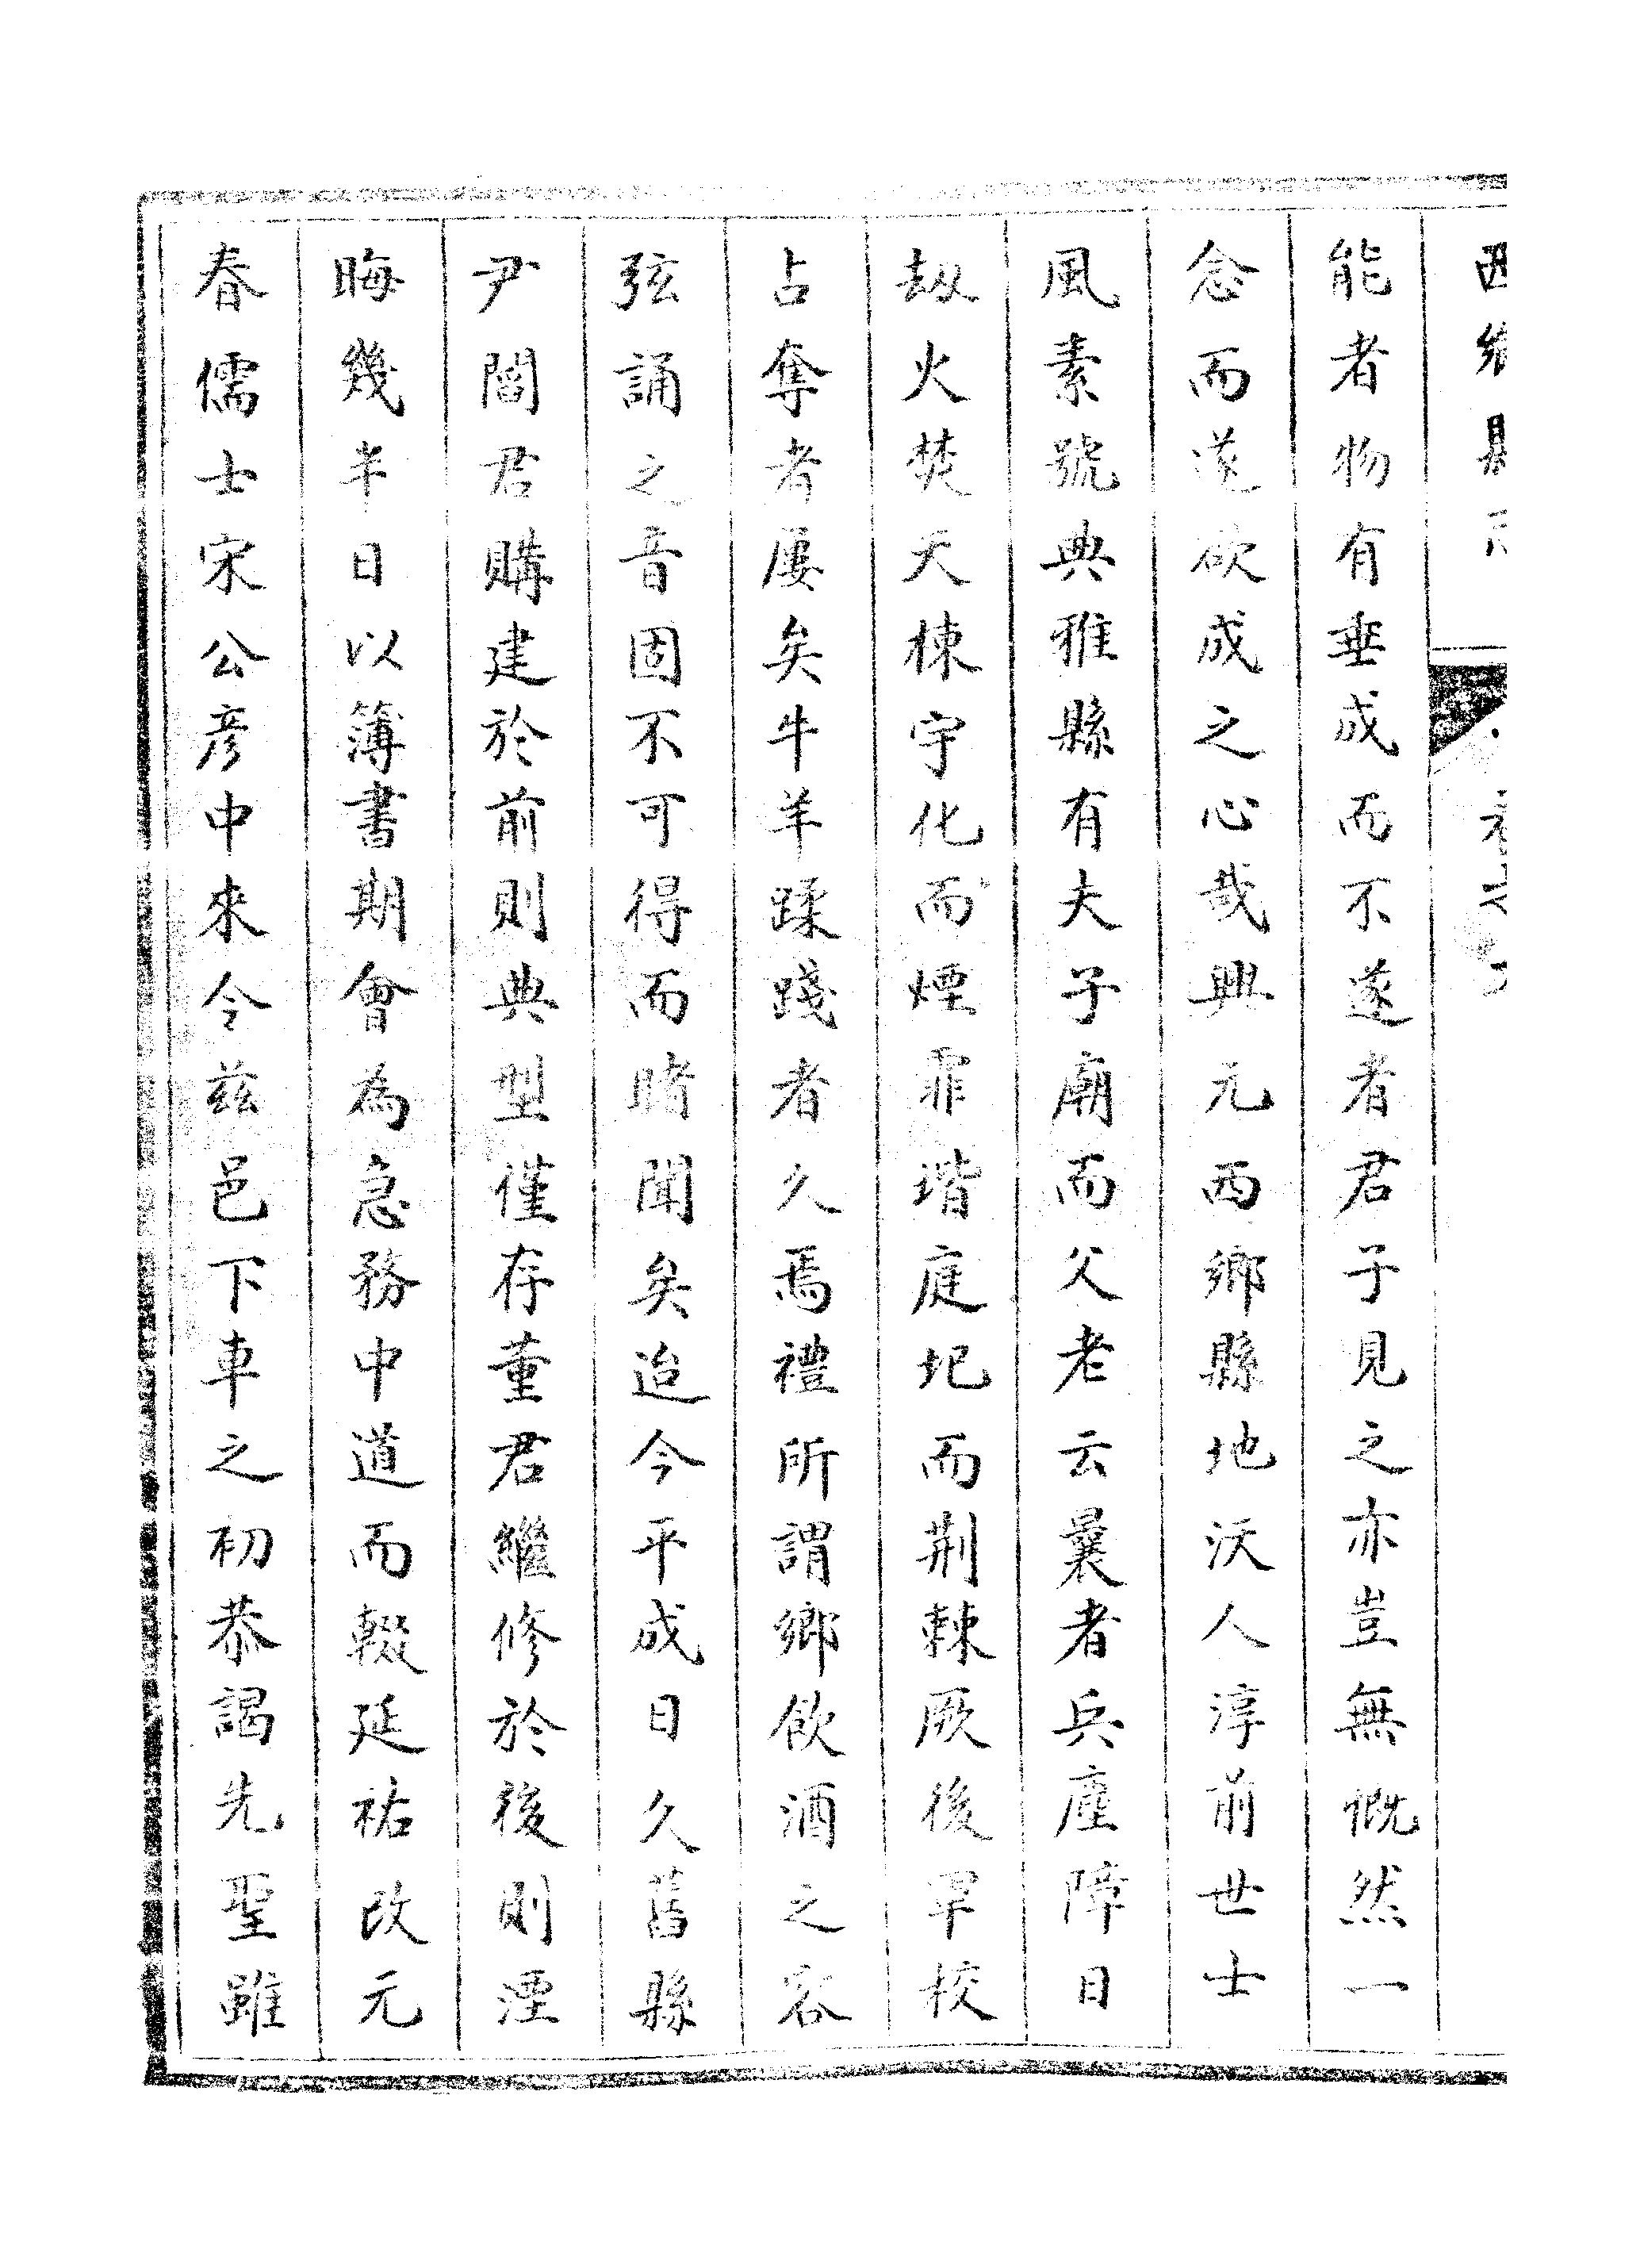 西鄉縣
能者物有垂成而不遂者君子見之亦豈無慨然一
念而遂欲成之心哉興元西鄉縣地沃人淳前世士
風素號典雅縣有夫子廟而父老云曩者兵塵障日
刼火焚天棟宇化而煙霏堦庭圯而荆棘厥後罕校
占奪者屢矣牛羊蹂踐者久焉禮所謂鄉飲酒之容
弦誦之音固不可得而睹聞矣迨今平成日久舊縣
尹閻君購建於前則典型僅存董君繼修於後則湮
晦幾半日以簿書期會為急務中道而輟延祐改元
春儒士宋公彦中來令兹邑下車之初恭謁先聖雖